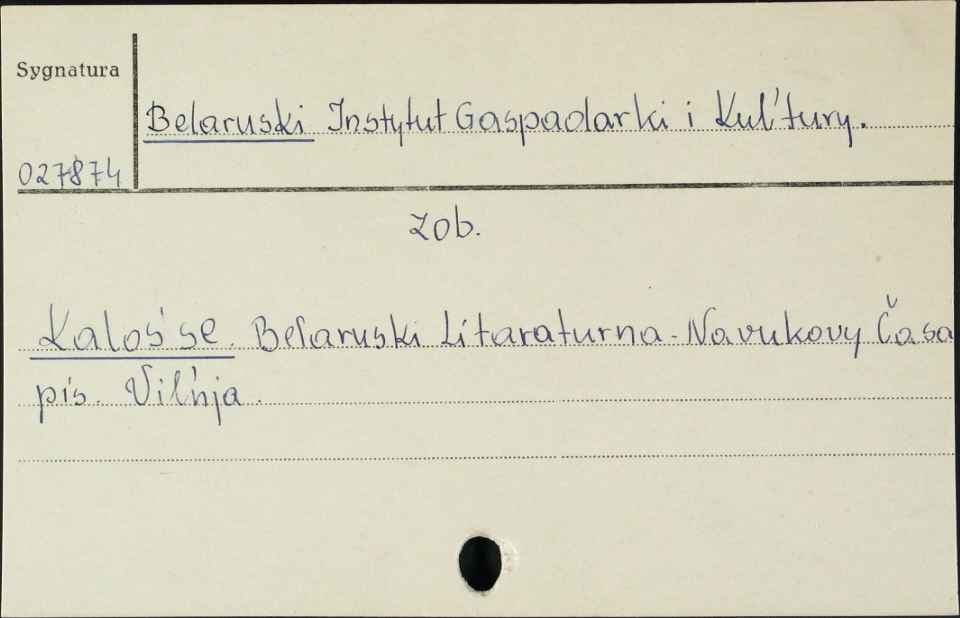 Sygnatura
Belaruski Instytut Gaspadarki i Kul'tury.
027874
zob.
Kalos'se. Belaruski Litaraturna-Navukovy Časa
pis. Vil'nja.